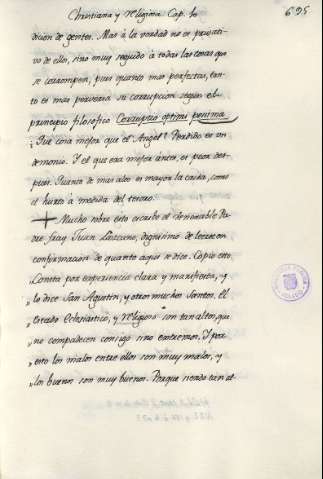 Christiana y Religiosa Cap. 10
695
dicion de gentes. Mas à la verdad no es privati-
vo de ellos, sino muy seguido à todas las cosas que
se corrompen, pues quanto mas perfectas, tan-
to es mas perversa su corrupcion segun el
principio filosofico Corruptio optimi pessima.
Que cosa mejor que el Angel? Perdido es un
demonio. Y el que era mejor antes, es peor des-
pues. Quanto de mas alto es mayor la caida, como
el hurto à medida del tesoro.
Mucho sobre esto escribe el venerable Pa-
dre fray Juan dignisimo de leerse en
confirmacion de quanto aqui se dice. Copio esto.
Consta por experiencia clara y manifiesta, y
lo dice San Agustin, y otros muchos Santos. El
estado Eclesiastico, y Religioso son tan altos, que
no compadecen consigo sino extremos. Y por
esto los malos entre ellos son muy malos, y
los buenos son muy buenos. Porque siendo tan al-